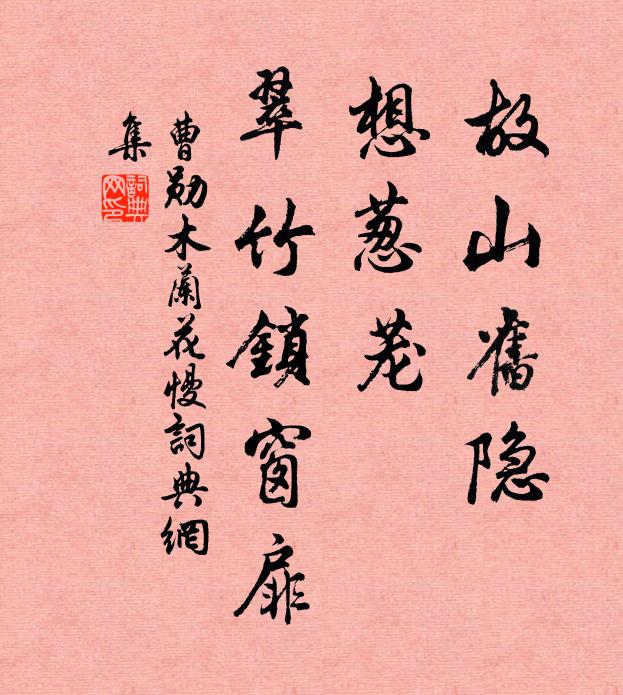 故山舊隐
想葱茏
翠竹鎖窗扉
曹勛木蘭花慢詞典網
集
詞典
网印